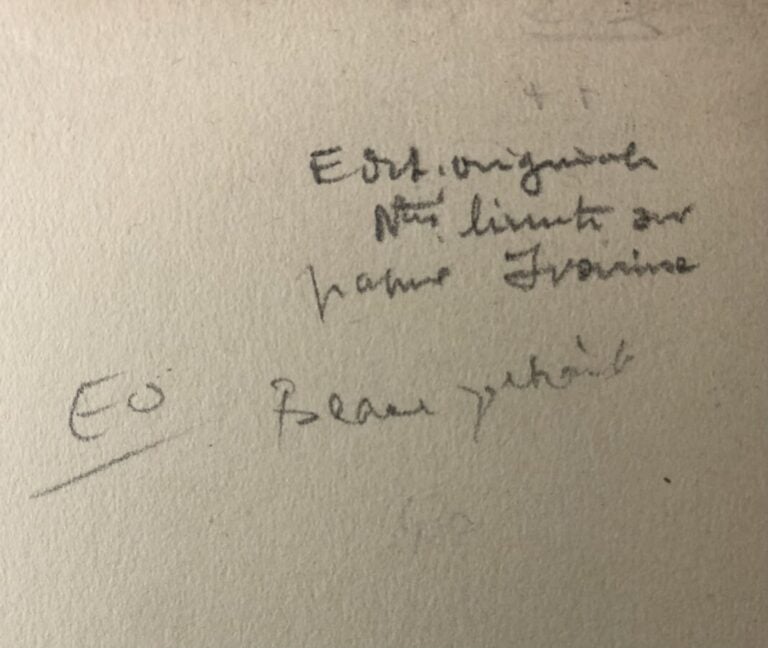 Edit. originale
Nᵗᵉˢ limité sur
papier Ivoirine
EO Beau portrait